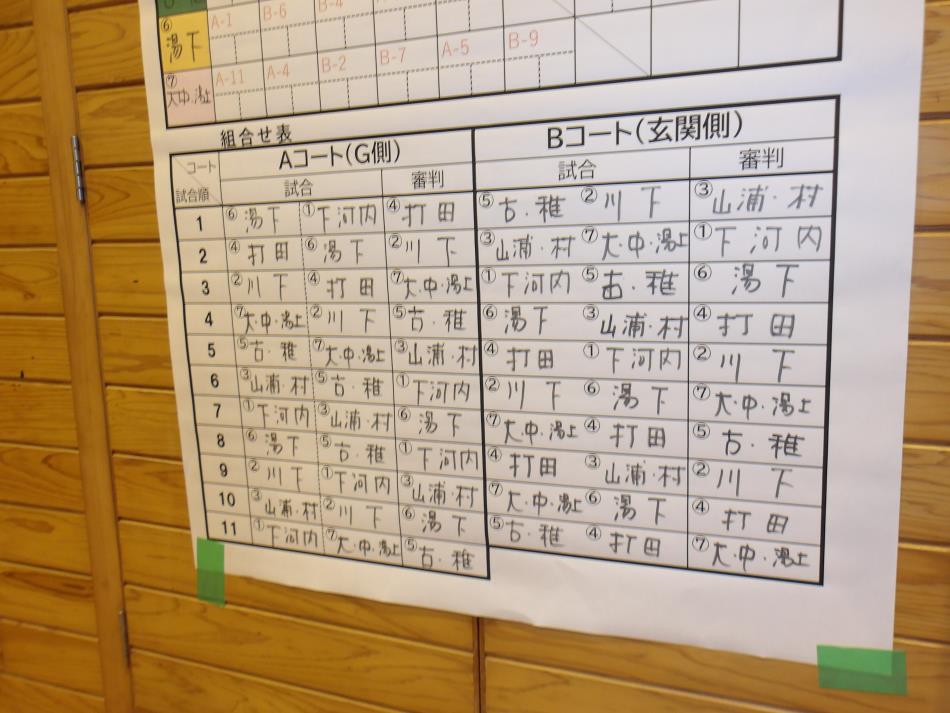 A-1 B-6 B-4
⑥湯下 A-5 B-9
⑦大中.湯上 A-11 A-4 B-2 B-7
組合せ表
コート Aコート(G側) Bコート(玄関側)
試合順 試合 審判 試合 審判
1 ⑥湯下 ①下河内 ④打田 ⑤古.稚 ②川下 ③山浦・村
2 ④打田 ⑥湯下 ②川下 ③山浦・村 ⑦大・中・湯上 ①下河内
3 ②川下 ④打田 ⑦大・中・湯上 ①下河内 ⑤古.稚 ⑥湯下
4 ⑦大・中・湯上 ②川下 ⑤古.稚 ⑥湯下 ③山浦・村 ④打田
5 ⑤古.稚 ⑦大・中・湯上 ③山浦・村 ④打田 ①下河内 ②川下
6 ③山浦・村 ⑤古.稚 ①下河内 ②川下 ⑥湯下 ⑦大・中・湯上
7 ①下河内 ③山浦・村 ⑥湯下 ⑦大・中・湯上 ④打田 ⑤古.稚
8 ⑥湯下 ⑤古.稚 ①下河内 ④打田 ③山浦・村 ②川下
9 ②川下 ①下河内 ③山浦・村 ⑦大・中・湯上 ⑥湯下 ④打田
10 ③山浦・村 ②川下 ⑥湯下 ⑤古.稚 ④打田 ⑦大・中・湯上
11 ①下河内 ⑦大・中・湯上 ⑤古.稚